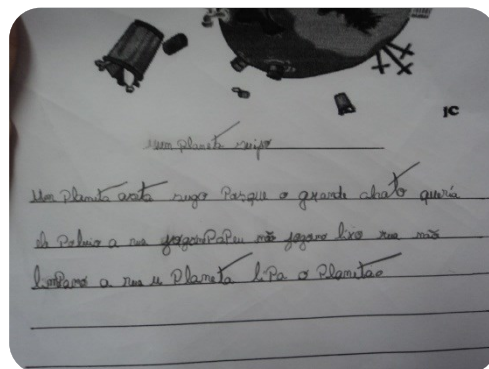 JC
uum planeta suijo
Um Planeta avita sugo Porque o grande chato queria
ela Poluio a rua jogomPaPeu não jogano lixo rua não
limPamo a rua u Planeta liPa o Planetao